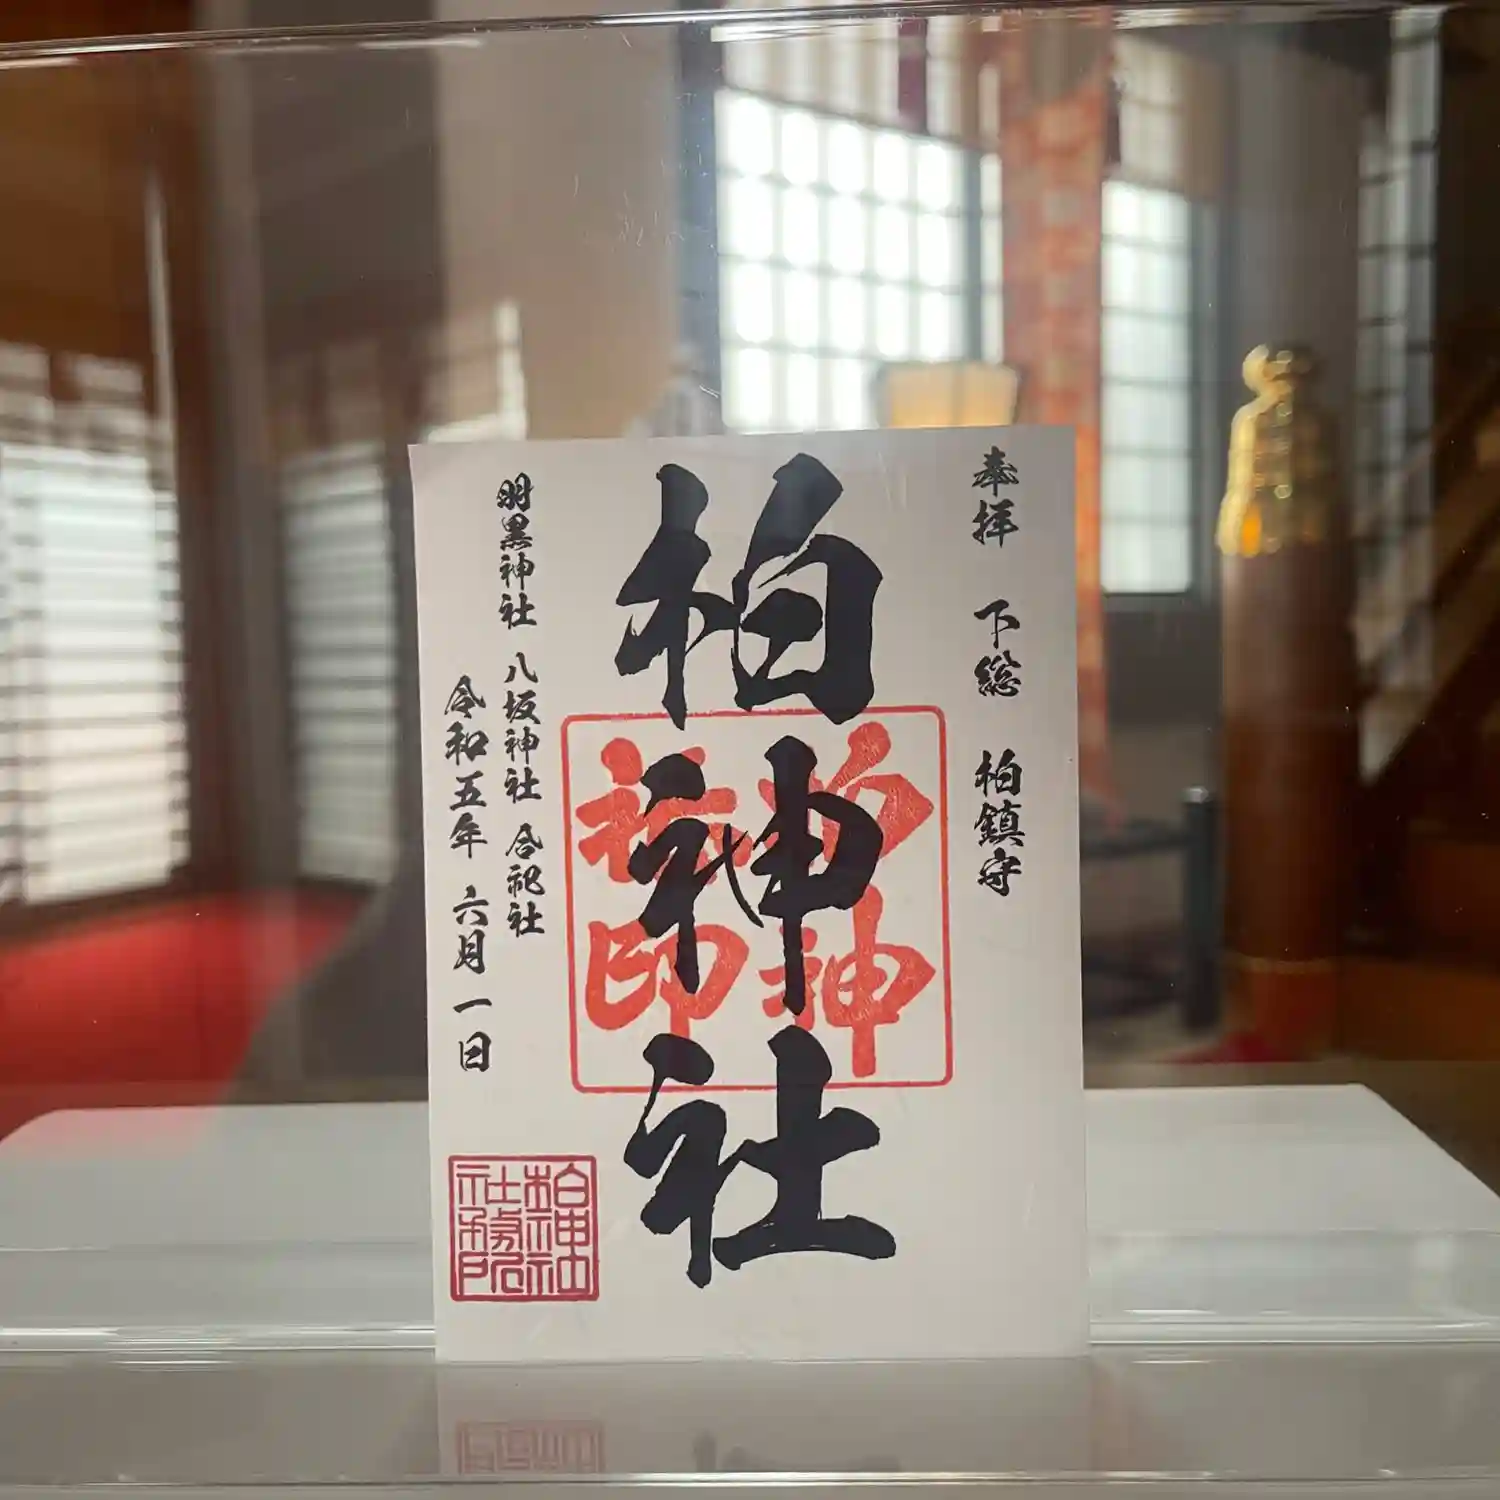 奉拝 下総 柏鎮守
柏神社
柏神社印
羽黒神社 八坂神社 合祀社
令和五年 六月 一日
柏神社社務所